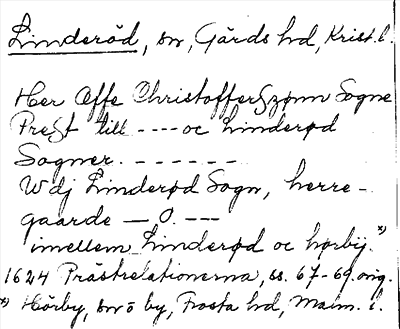 Linderöd, sn, Gärds hd, Krist. l.
Her Offe Christofferszønn Sogne
Prest till ---- oc Linderød
Sogner. - - - - - -
Wdj Linderød Sogn, herre-
gaarde — O. ---
imellem Linderød oc hørbij. *)
1624 Prästrelationerna, ss. 67-69 orig.
*) Hörby, sn o by, Frosta hd, Malm. l.